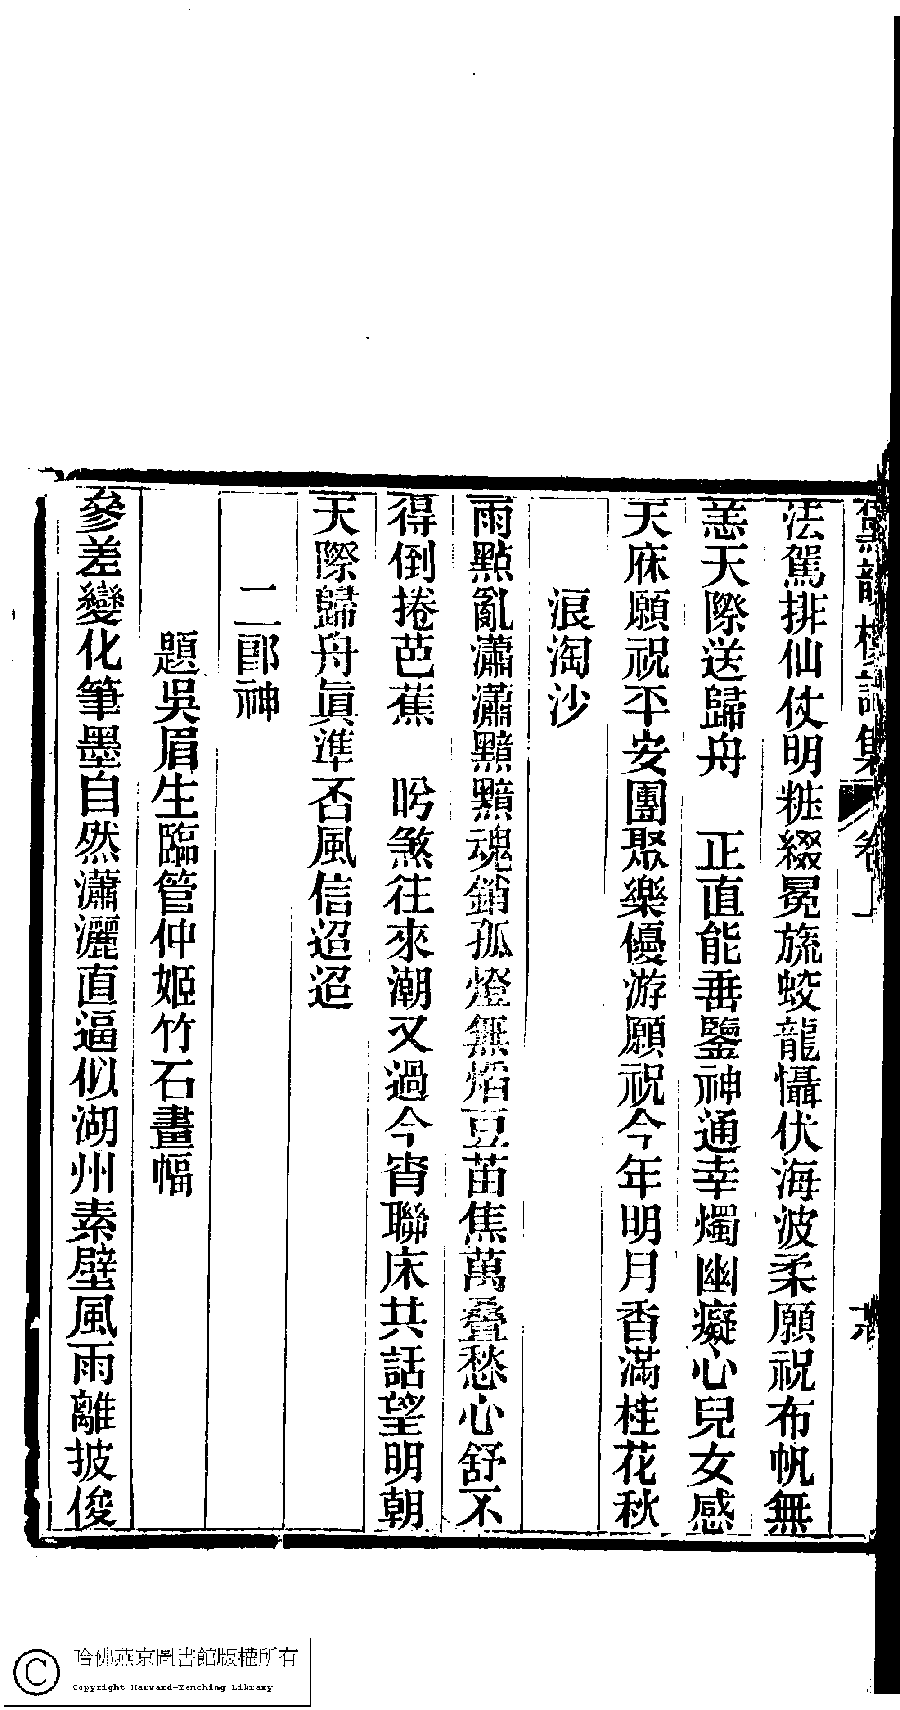 法駕排仙仗明粧綴冕旒蛟龍懾伏海波柔願祝布帆無
恙天際送歸舟　正直能垂鑒神通幸燭幽癡心兒女感
天庥願祝平安團聚樂優游願祝今年明月香滿桂花秋
浪淘沙
雨點亂瀟瀟黯黯魂銷孤燈無焰豆苗焦萬疊愁心舒不
得倒捲芭蕉　盻煞往來潮又過今宵聯床共話望明朝
天際歸舟眞準否風信迢迢
二郎神
題吳眉生臨管仲姬竹石畫幅
參差變化筆墨自然瀟灑直逼似湖州素壁風雨離披俊
哈佛燕京圖書館版權所有
Copyright Harvard-Yenching Library